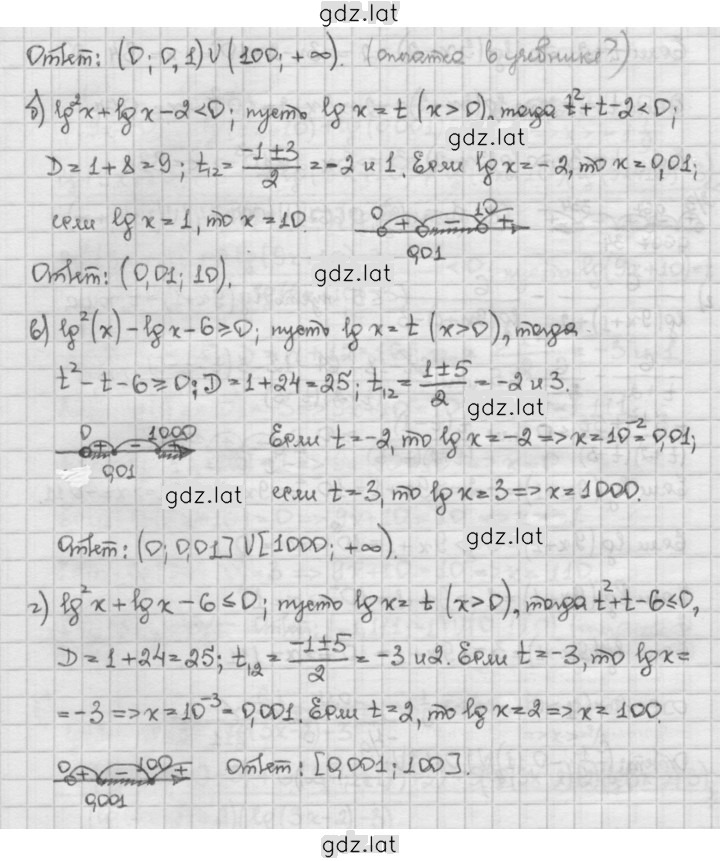 gdz.lat
Ответ: (0; 0,1) ∪ (100; +∞). (опечатка в учебнике?)
б) lg²x + lg x − 2 < 0; пусть lg x = t (x > 0), тогда t² + t − 2 < 0;
gdz.lat
D = 1 + 8 = 9; t₁₂ = (−1 ± 3)/2 = −2 и 1. Если lg x = −2, то x = 0,01;
если lg x = 1, то x = 10.
0 + − 10 +
0,01
Ответ: (0,01; 10).
gdz.lat
в) lg²(x) − lg x − 6 ≥ 0; пусть lg x = t (x > 0), тогда
t² − t − 6 ≥ 0; D = 1 + 24 = 25; t₁,₂ = (1 ± 5)/2 = −2 и 3.
gdz.lat
0 + − 1000 +
0,01
Если t = −2, то lg x = −2 => x = 10⁻² = 0,01;
gdz.lat
если t = 3, то lg x = 3 => x = 1000.
gdz.lat
Ответ: (0; 0,01] ∪ [1000; +∞).
г) lg²x + lg x − 6 ≤ 0; пусть lg x = t (x > 0), тогда t² + t − 6 ≤ 0,
D = 1 + 24 = 25; t₁,₂ = (−1 ± 5)/2 = −3 и 2. Если t = −3, то lg x =
gdz.lat
= −3 => x = 10⁻³ = 0,001. Если t = 2, то lg x = 2 => x = 100.
0 + − 100 +
0,001
Ответ: [0,001; 100].
gdz.lat